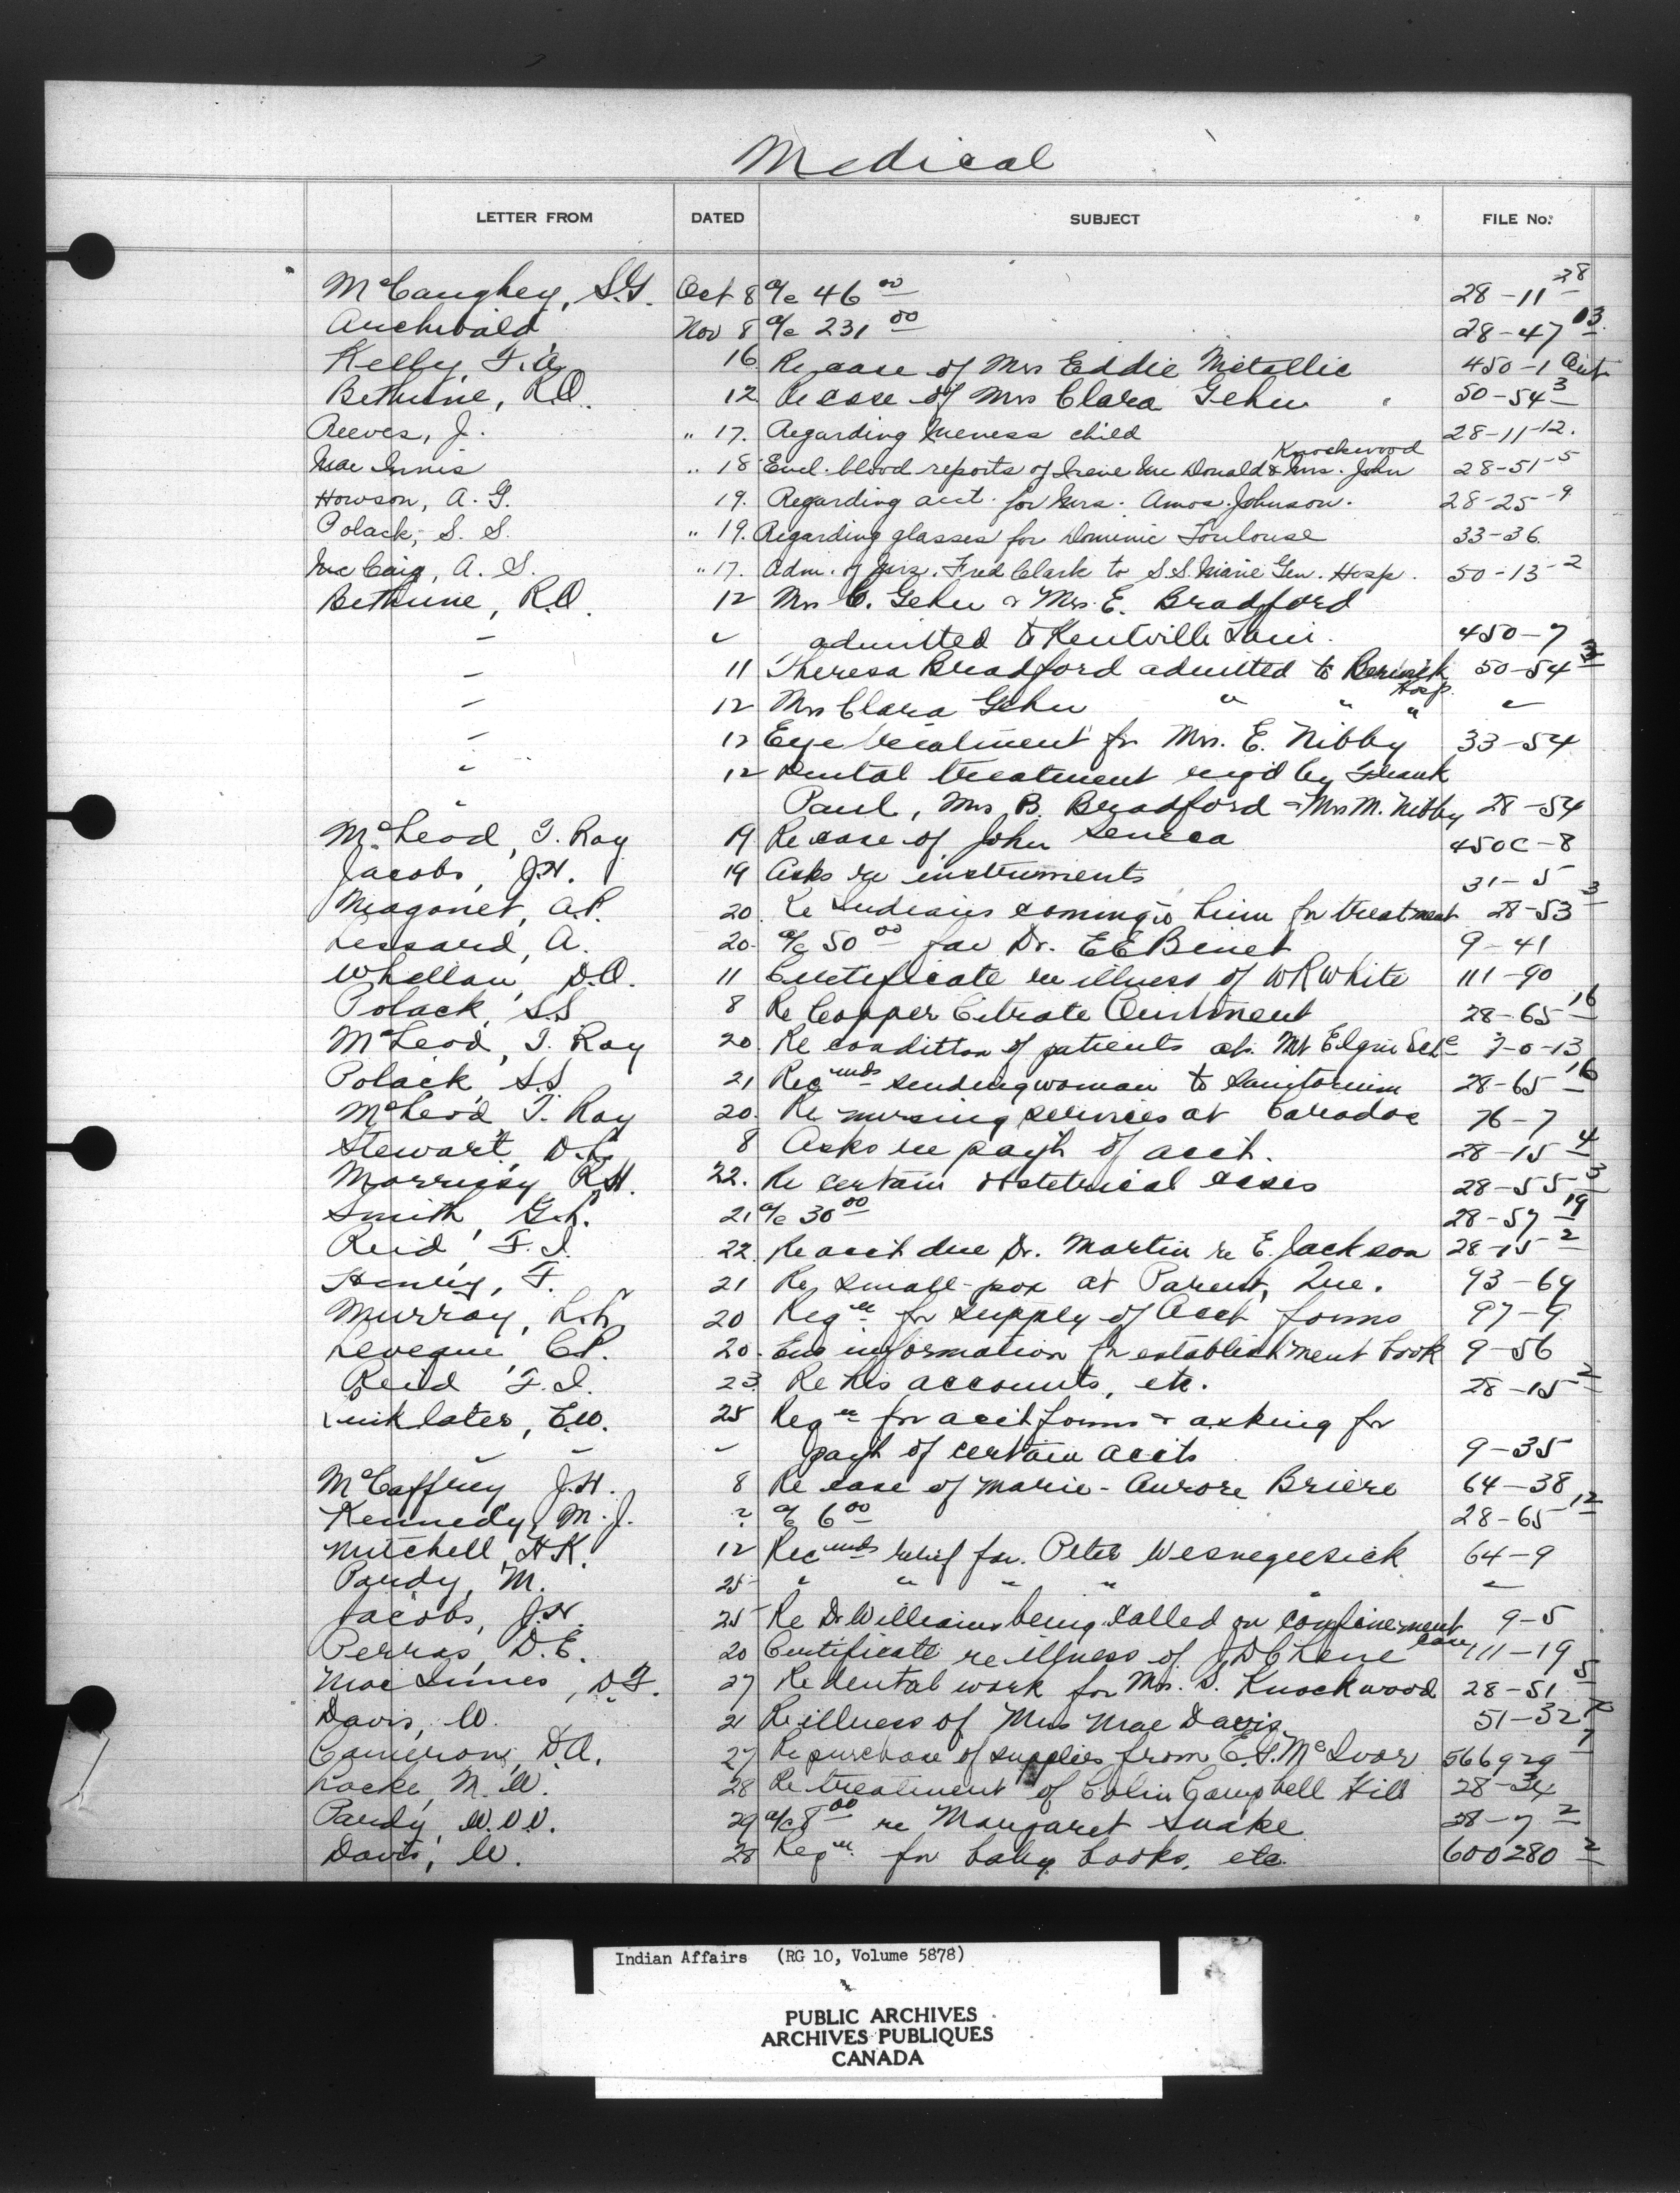 Medical
LETTER FROM DATED SUBJECT FILE No.
McCaughey, S.G. Oct 8 a/c 46 00 28-11 28
Archibald Nov 8 a/c 231 00 28-47 13
Kelly, F.A. 16 Re case of Mrs Eddie Metallic 450-1
Bethune, R.O. 12 Re case of Mrs Clara Gehu 50-54 3
Reeves, J. " 17. Regarding child 28-11-12.
Mac Innis " 18 Encl. blood reports of Irene Mc Donald & Mrs. John Knockwood 28-51-5
Howson, A. G. 19. Regarding acct. for Mrs. Amos Johnson. 28-25-9
Polack, S. S. " 19. Regarding glasses for Dominic Toulouse 33-36.
Mc Caig, A. S. " 17. Adm. of Mrs. Fred Clark to S.S. Marie Gen. Hosp. 50-13-2
Bethune, R.O. 12 Mrs C. Gehu & Mrs. E. Bradford
" " admitted to Kentville Sani. 450-7
" 11 Theresa Bradford admitted to Berwick Hosp. 50-54 3
" 12 Mrs Clara Gehu " " " "
" 12 Eye treatment for Mrs. E. Nibby 33-54
" 12 Dental treatment req'd by Frank
" Paul, Mrs B. Bradford & Mrs M. Nibby 28-54
McLeod, T. Ray 19 Re case of John Seneca 450C-8
Jacobs, J.H. 19 Asks re instruments 31-5
Magonet, A.P. 20 Re Indians coming to him for treatment 28-53 3
Lessard, A. 20. a/c 50 00 fav Dr. E E Binet 9-41
Whellan, D.O. 11 Certificate re illness of W R White 111-90
Polack, S.S 8 Re Copper Citrate Ointment 28-65 16
McLeod, T. Ray 20. Re condition of patients at Mt Elgin 7-0-13
Polack, S.S 21 Recmnds sending woman to Sanitorium 28-65 16
McLeod, T. Ray 20. Re nursing services at Caradoc 76-7
Stewart, D.C. 8 Asks re payt of acct. 28-15 4
Morrissy, R.H. 22. Re certain obstetrical cases 28-55 3
Smith, G.L. 21 a/c 30 00 28-57 19
Reid, F.I. 22 Re acct due Dr. Martin re E. Jackson 28-15 2
Henley, F. 21 Re small-pox at Parent, Que. 93-64
Murray, L.L. 20 Reqn for supply of Acct forms 97-9
Leveque, C.P. 20. Enc information for establishment book 9-56
Reid F.I. 23 Re his accounts, etc. 28-15 2
Linklater, E.W. 25 Reqn for acct forms & asking for
" " " payt of certain accts 9-35
McCaffrey J.H. 8 Re case of Marie-Aurore Briere 64-38
Kennedy, M.J. ? a/c 6 00 28-65 12
Mitchell, H.K. 12 Recmnds relief for Peter Wesnegeesick 64-9
Pardy, M. 25 " " " " "
Jacobs, J.H. 25 Re Dr Williams being called on confinement case 9-5
Perras, D.E. 20 Certificate re illness of J D Chene 111-19
MacInnes, D.F. 27 Re dental work for Mrs. S. Knockwood 28-51 5
Davis, W. 21 Re illness of Miss Mae Davis 51-32
Cameron, D.A. 27 Re purchase of supplies from E.S. McIvor 566929 7
Locke, M.W. 28 Re treatment of Colin Campbell Hill 28-34
Pardy, W.V.V. 29 a/c 8 00 re Margaret Snake 28-7 2
Davis, W. 28 Reqn for baby books, etc. 600280 2
Indian Affairs (RG 10, Volume 5878)
PUBLIC ARCHIVES
ARCHIVES PUBLIQUES
CANADA